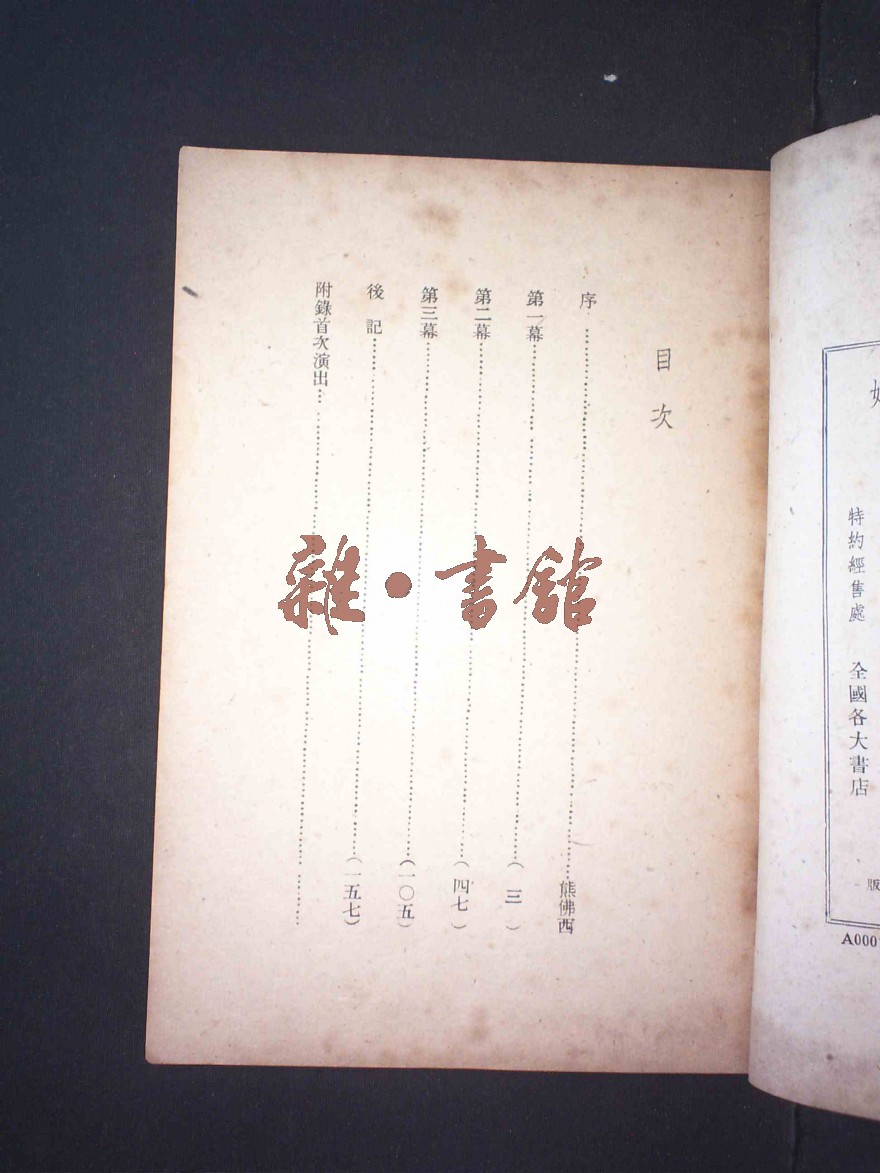 目次
序……熊佛西
第一幕……（三）
第二幕……（四七）
第三幕……（一〇五）
後記……（一五七）
附錄首次演出……
雜•書館
特約經售處 全國各大書店
版
A000